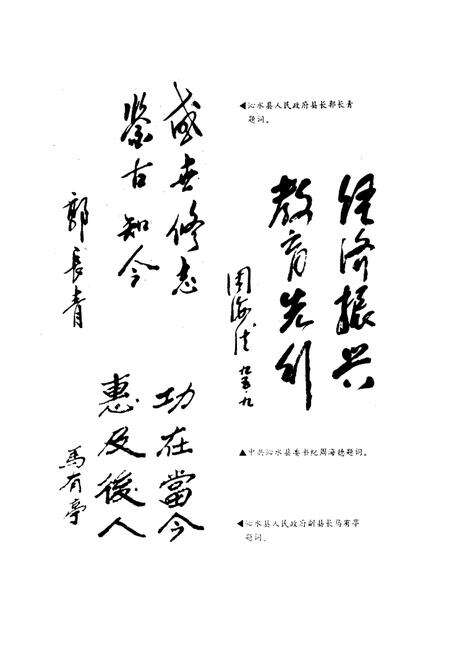 ◀沁水县人民政府县长郭长青
题词。
盛世修志
鉴古知今
郭長青
经济振兴
教育先行
周海德
九五.九
▲中共沁水县委书记周海德题词。
功在當今
惠及後人
馬有亭
◀沁水县人民政府副县长马有亭
题词。